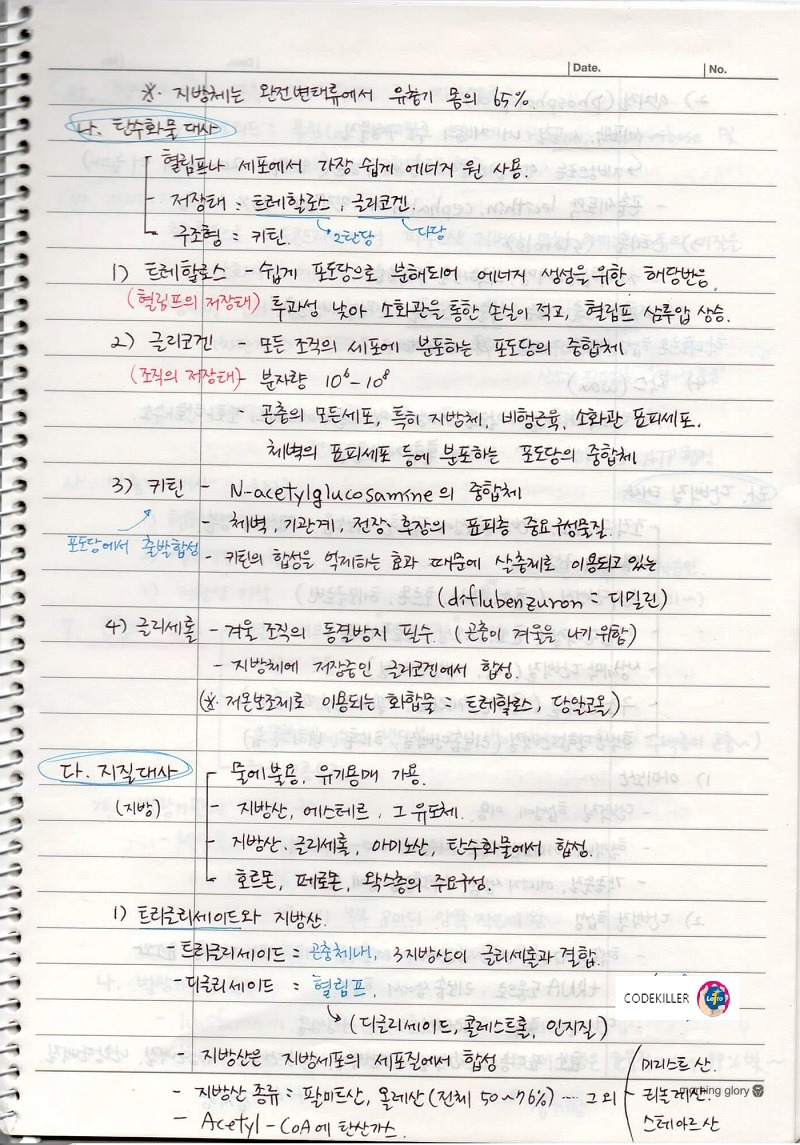 Date.
No.
※. 지방체는 완전변태류에서 유충기 몸의 65%.
나. 탄수화물 대사
혈림프나 세포에서 가장 쉽게 에너지원 사용.
- 저장태 : 트레할로스, 글리코겐.
- 구조형 : 키틴. 2탄당 다당
1) 트레할로스 - 쉽게 포도당으로 분해되어 에너지 생성을 위한 해당반응.
(혈림프의 저장태) 투과성 낮아 소화관을 통한 손실이 적고, 혈림프 삼투압 상승.
2) 글리코겐 - 모든 조직의 세포에 분포하는 포도당의 중합체.
(조직의 저장태) - 분자량 10⁶-10⁸
- 곤충의 모든세포, 특히 지방체, 비행근육, 소화관 표피세포.
체벽의 표피세포 등에 분포하는 포도당의 중합체
3) 키틴 - N-acetylglucosamine의 중합체
- 체벽, 기관계, 전장·후장의 표피층 주요구성물질.
포도당에서 출발합성
- 키틴의 합성을 억제하는 효과 때문에 살충제로 이용되고 있는
(diflubenzuron = 디밀린)
4) 글리세롤 - 겨울 조직의 동결방지 필수. (곤충이 겨울을 나기 위함)
- 지방체에 저장중인 글리코겐에서 합성.
(※. 저온보조제로 이용되는 화합물 = 트레할로스, 당알코올)
다. 지질대사
물에 불용, 유기용매 가용.
(지방) - 지방산, 에스테르, 그 유도체.
- 지방산·글리세롤, 아미노산, 탄수화물에서 합성.
호르몬, 페로몬, 왁스층의 주요구성.
1) 트리글리세이드와 지방산.
- 트리글리세이드 = 곤충체내, 3지방산이 글리세롤과 결합.
- 디글리세이드 = 혈림프.
CODEKILLER
(디글리세이드, 콜레스트롤, 인지질)
- 지방산은 지방세포의 세포질에서 합성
미리스트산.
- 지방산 종류 : 팔미트산, 올레산(전체 50~76%) ---- 그 외
리놀레산.
morning glory
- Acetyl-CoA에 탄산가스.
스테아르산